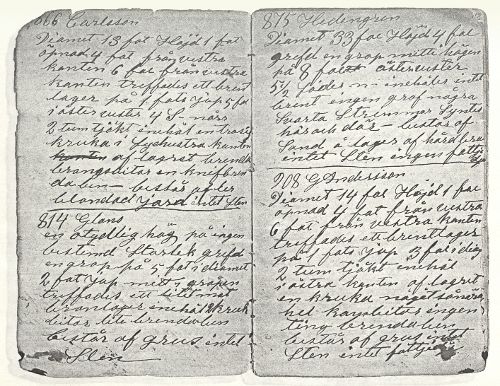 666 Carlsson
Diamet 13 fot Höjd 1 fot
öpnad 4 fot från vestra
kanten 6 fot från vestra
kanten treffades ett brent
lager på 1 fots jup 5 fo
i öster vester 4 S. nor
2 tum tjokt inehöt en trasi
kruka i Sydvestra kanten
af lagret brenda
ben bestor af
blondad Jord intet Sten
814 Glans
en otydlig hög på ingen
bestemd Storlek grefd
en grop på 5 fot i diamet
2 fot jup mitt i gropen
treffades ett litet
brandlager inehöt kruk
bitar lite brenda ben
bestor af grus intet
Sten
815 Hedengren
Diamet 33 fot Höjd 4 fot
grefd en grop mitt i högen
på 8 fot öster vester
5½
brent engen graf några
Svarta Strimmor Syntes
här och där bestor af
Sand å lager af hård
intet Sten engen
908 G Andersson
Diamet 14 fot Höjd 1 fot
öpnad 4 fot från vestra
6 fot från vestra kanten
treffades ett brentlager
på 1 fots jup 3 fot i diam
2 tum tjokt inehöt
i östra kanten af lagret
en kruka något
hel ingen
ting brenda ben
bestor af grus intet
Sten intet